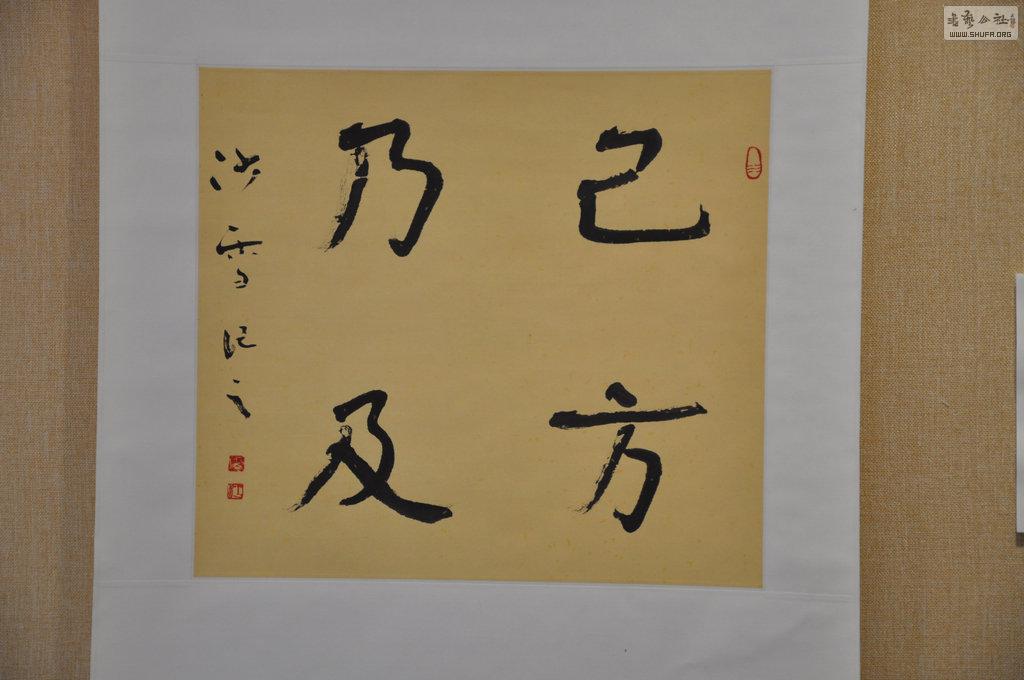 己方
乃及
沙雪記之
书艺公社
WWW.SHUFA.ORG